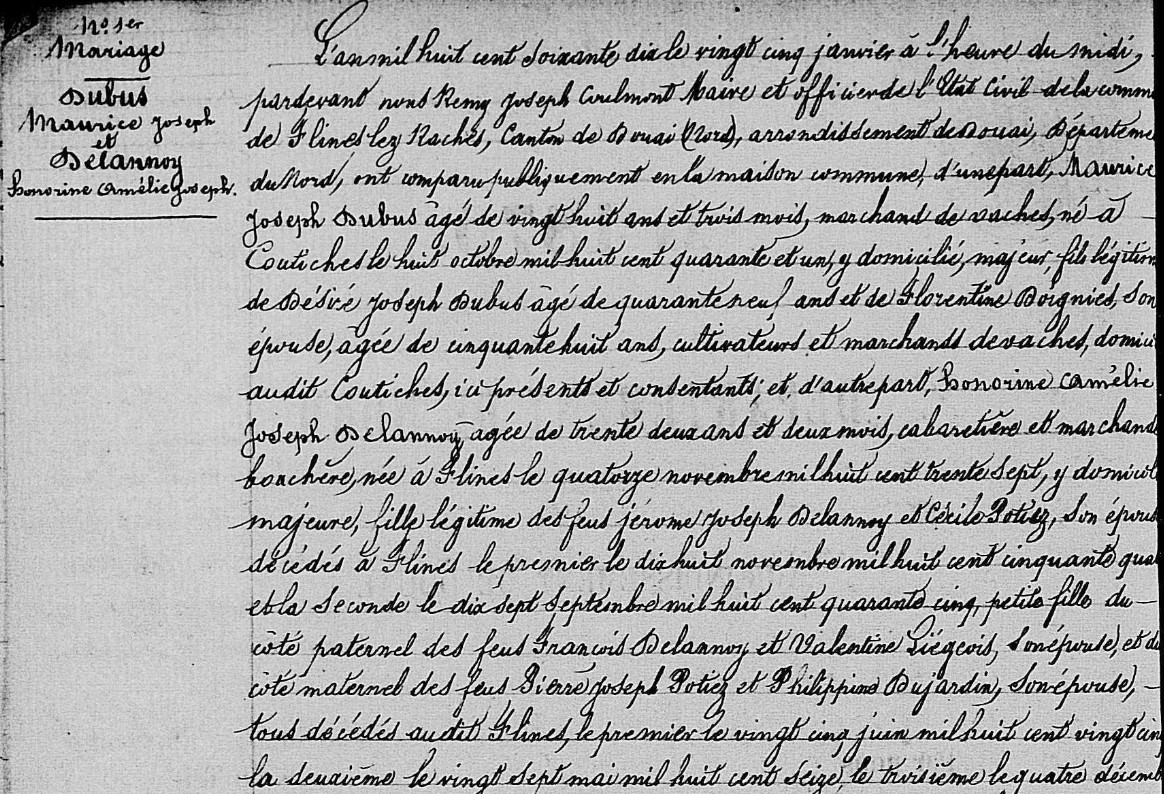 No. 1er
Mariage
Dubus
Maurice Joseph
et
Delannoy
honorine amélie Joseph.
L'an mil huit cent soixante dix le vingt cinq janvier à l'heure du midi,
pardevant nous Remy Joseph Coulmont Maire et officier de l'Etat Civil de la comm
de Flines lez Raches, Canton de Douai (Nord), arrondissement de Douai, Départeme
du Nord, ont comparu publiquement en la maison commune, d'une part, Maurice
Joseph Dubus âgé de vingt huit ans et trois mois, marchand de vaches, né à
Coutiches le huit octobre mil huit cent quarante et un, y domicilié, majeur, fils légitim
de Désiré Joseph Dubus âgé de quarante neuf ans et de Florentine Doignies, son
épouse, âgée de cinquante huit ans, cultivateurs et marchands de vaches, domici
audit Coutiches, ici présents et consentants; et, d'autre part, honorine amélie
Joseph Delannoy, agée de trente deux ans et deux mois, cabaretière et marchand
bouchère, née à Flines le quatorze novembre mil huit cent trente sept, y domicil
majeure, fille légitime des feus jérome Joseph Delannoy et Cécile Potiez, son épous
décédés à Flines le premier le dix huit novembre mil huit cent cinquante qua
et la seconde le dix sept septembre mil huit cent quarante cinq, petite fille du
côté paternel des feus François Delannoy et Valentine Liégeois, son épouse, et du
côté maternel des feus Pierre Joseph Potiez et Philippine Dujardin, son épouse,
tous décédés audit Flines, le premier le vingt cinq juin mil huit cent vingt cin
la deuxième le vingt sept mai mil huit cent seize, le troisième le quatre décemb